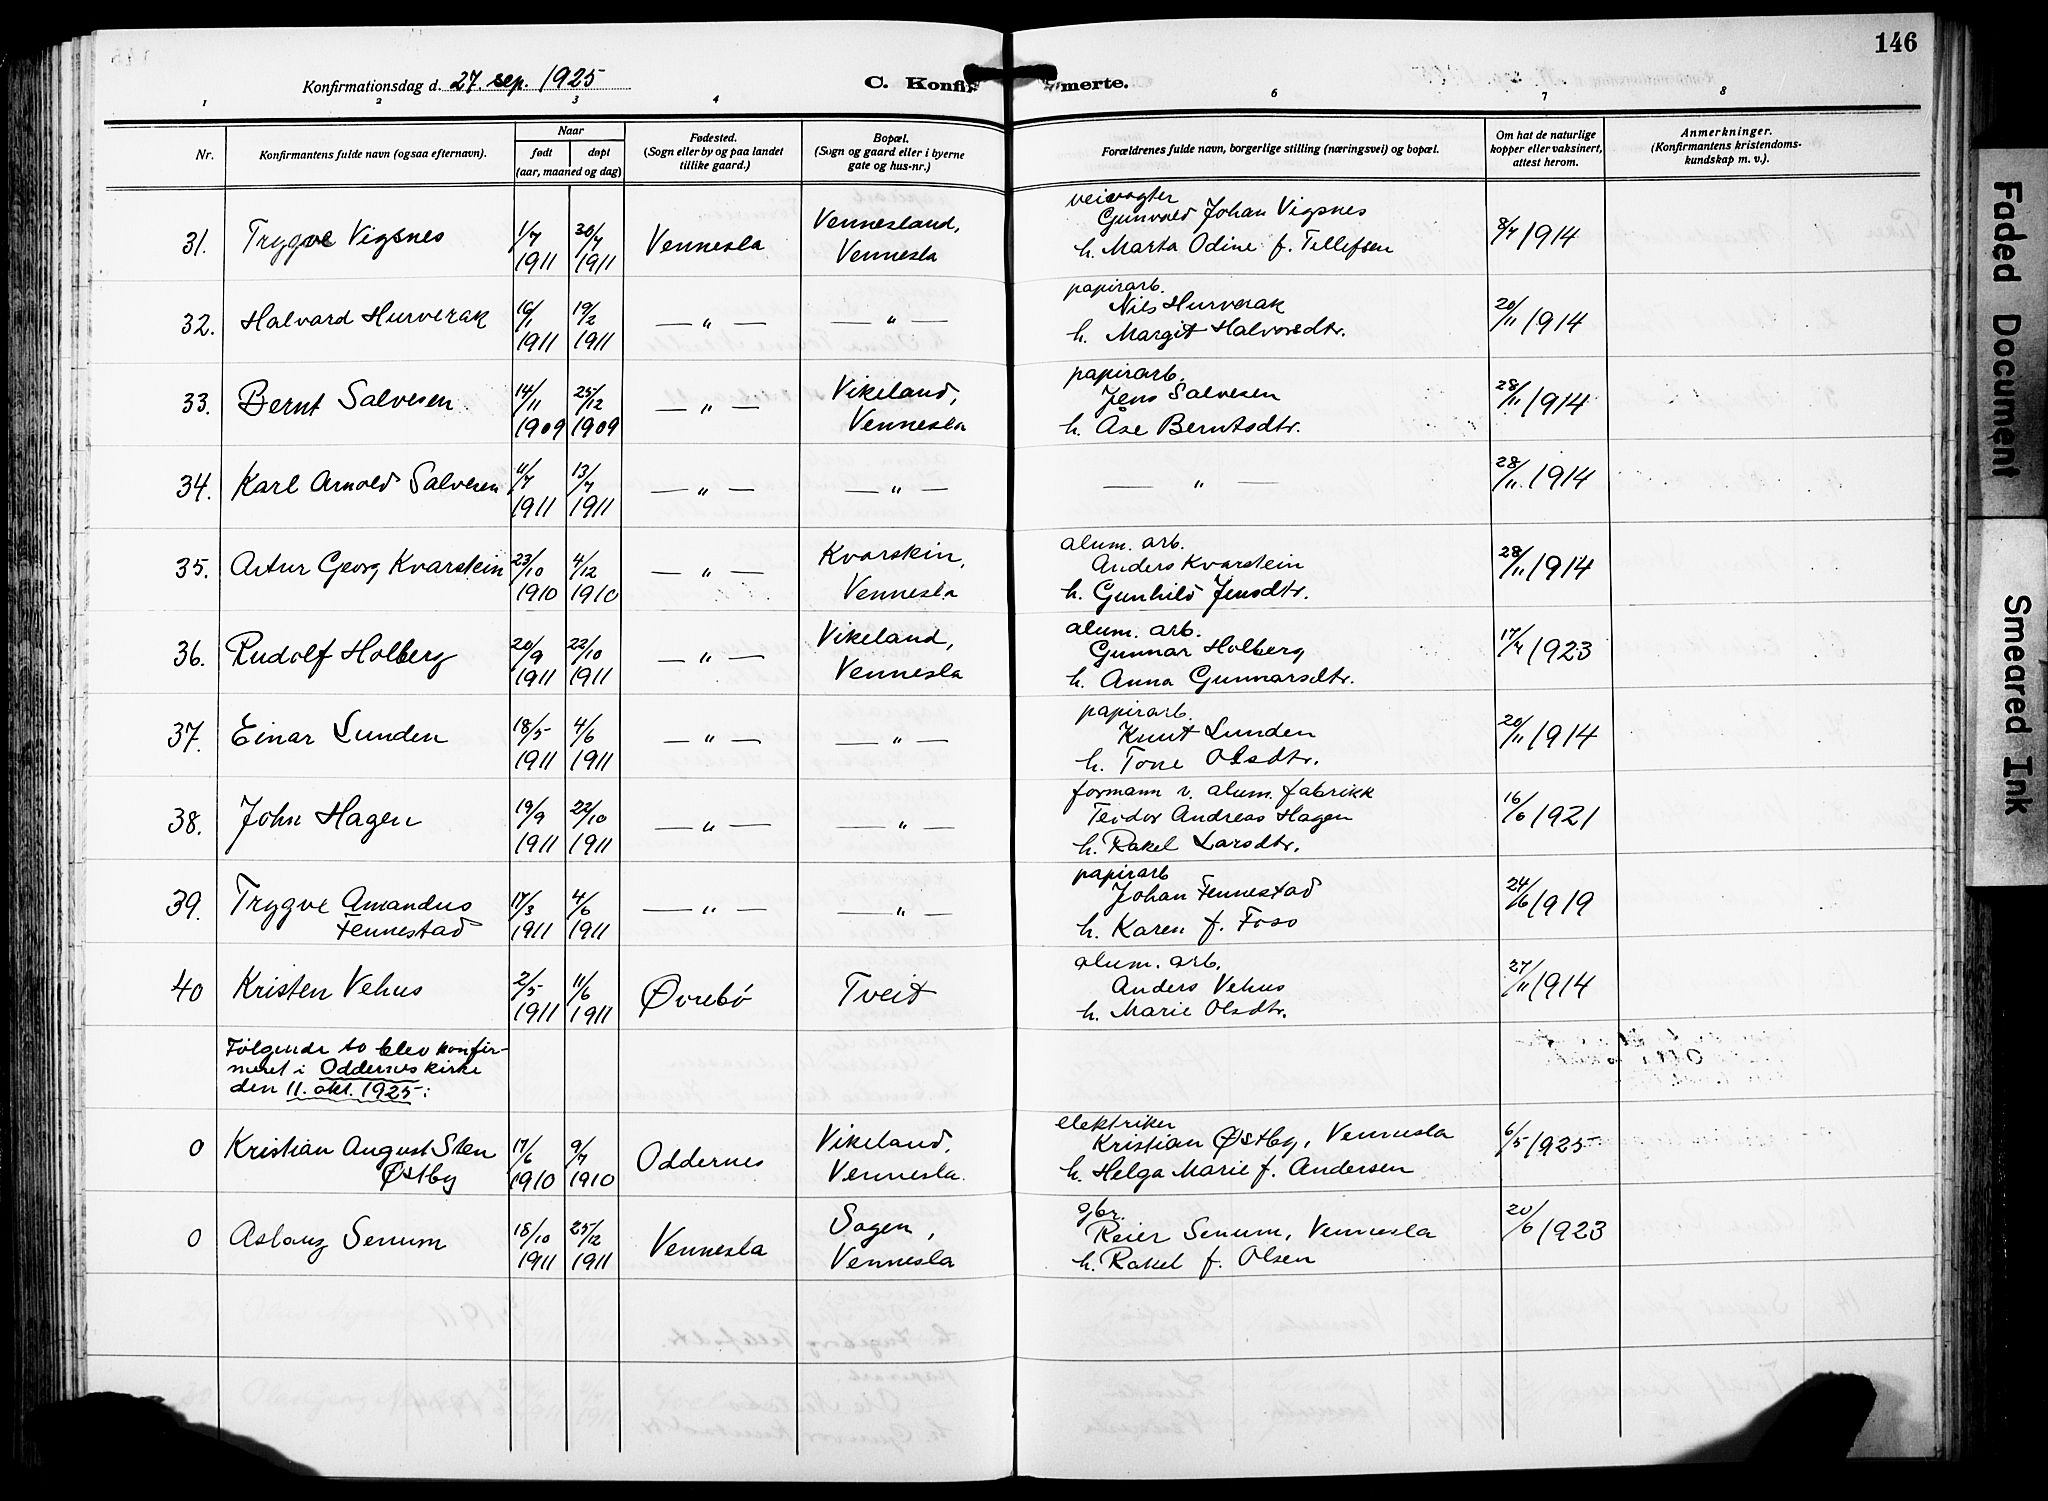 146
Konfirmationsdag d. 27. sep. 1925
C. Konfir merte.
1 2 3 4 5 6 7 8
Nr.
Konfirmantens fulde navn (ogsaa efternavn).
Naar
født
døpt
(aar, maaned og dag)
Fødested.
(Sogn eller by og paa landet
tillike gaard.)
Bopæl.
(Sogn og gaard eller i byerne
gate og hus-nr.)
Forældrenes fulde navn, borgerlige stilling (næringsvei) og bopæl.
Om hat de naturlige
kopper eller vaksinert,
attest herom.
Anmerkninger.
(Konfirmantens kristendoms-
kundskap m. v.).
31. Trygve Vigsnes 1/7 1911 30/7 1911 Vennesla Vennesland, Vennesla
veivogter
Gunvald Johan Vigsnes
h. Marta Odine f. Tellefsen
8/7 1914
32. Halvard Hurverak 16/1 1911 19/2 1911 — " — — " —
papirarb.
Nils Hurverak
h. Margit Halvorsdtr.
20/11 1914
33. Bernt Salvesen 14/11 1909 25/12 1909 — " — Vikeland, Vennesla
papirarb.
Jens Salvesen
h. Åse Berntsdtr.
28/11 1914
34. Karl Arnold Salvesen 11/7 1911 13/7 1911 — " — — " —
— " —
28/11 1914
35. Artur Georg Kvarstein 23/10 1910 4/12 1910 — " — Kvarskin, Vennesla
alum. arb.
Anders Kvarstein
h. Gunhild Jensdtr.
28/11 1914
36. Rudolf Holberg 20/9 1911 22/10 1911 — " — Vikeland, Vennesla
alum. arb.
Gunnar Holberg
h. Anna Gunnarsdtr.
17/7 1923
37. Einar Lunden 18/5 1911 4/6 1911 — " — — " —
papirarb.
Knut Lunden
h. Tone Olsdtr.
20/11 1914
38. John Hagen 19/9 1911 22/10 1911 — " — — " —
formann v. alum. fabrikk
Teodor Andreas Hagen
h. Rakel Larsdtr.
16/6 1921
39. Trygve Amandus
Fennestad 17/3 1911 4/6 1911 — " — — " —
papirarb
Johan Fennestad
h. Karen f. Foso
24/6 1919
40 Kristen Vehus 2/5 1911 11/6 1911 Øvrebø Tveit
alum. arb.
Anders Vehus
h. Marie Olsdtr.
27/11 1914
Følgende to blev konfir-
meret i Oddernes kirke
den 11. okt. 1925:
0 Kristian August Sten
Østby 17/6 1910 9/7 1910 Oddernes Vikeland, Vennesla
elektriker
Kristian Østby, Vennesla
h. Helga Marie f. Andersen
6/5 1925
0 Aslaug Senum 18/10 1911 25/12 1911 Vennesla Sagen, Vennesla
gbr.
Reier Senum, Vennesla
h. Rakel f. Olsen
20/6 1923
Faded Document
Smeared Ink